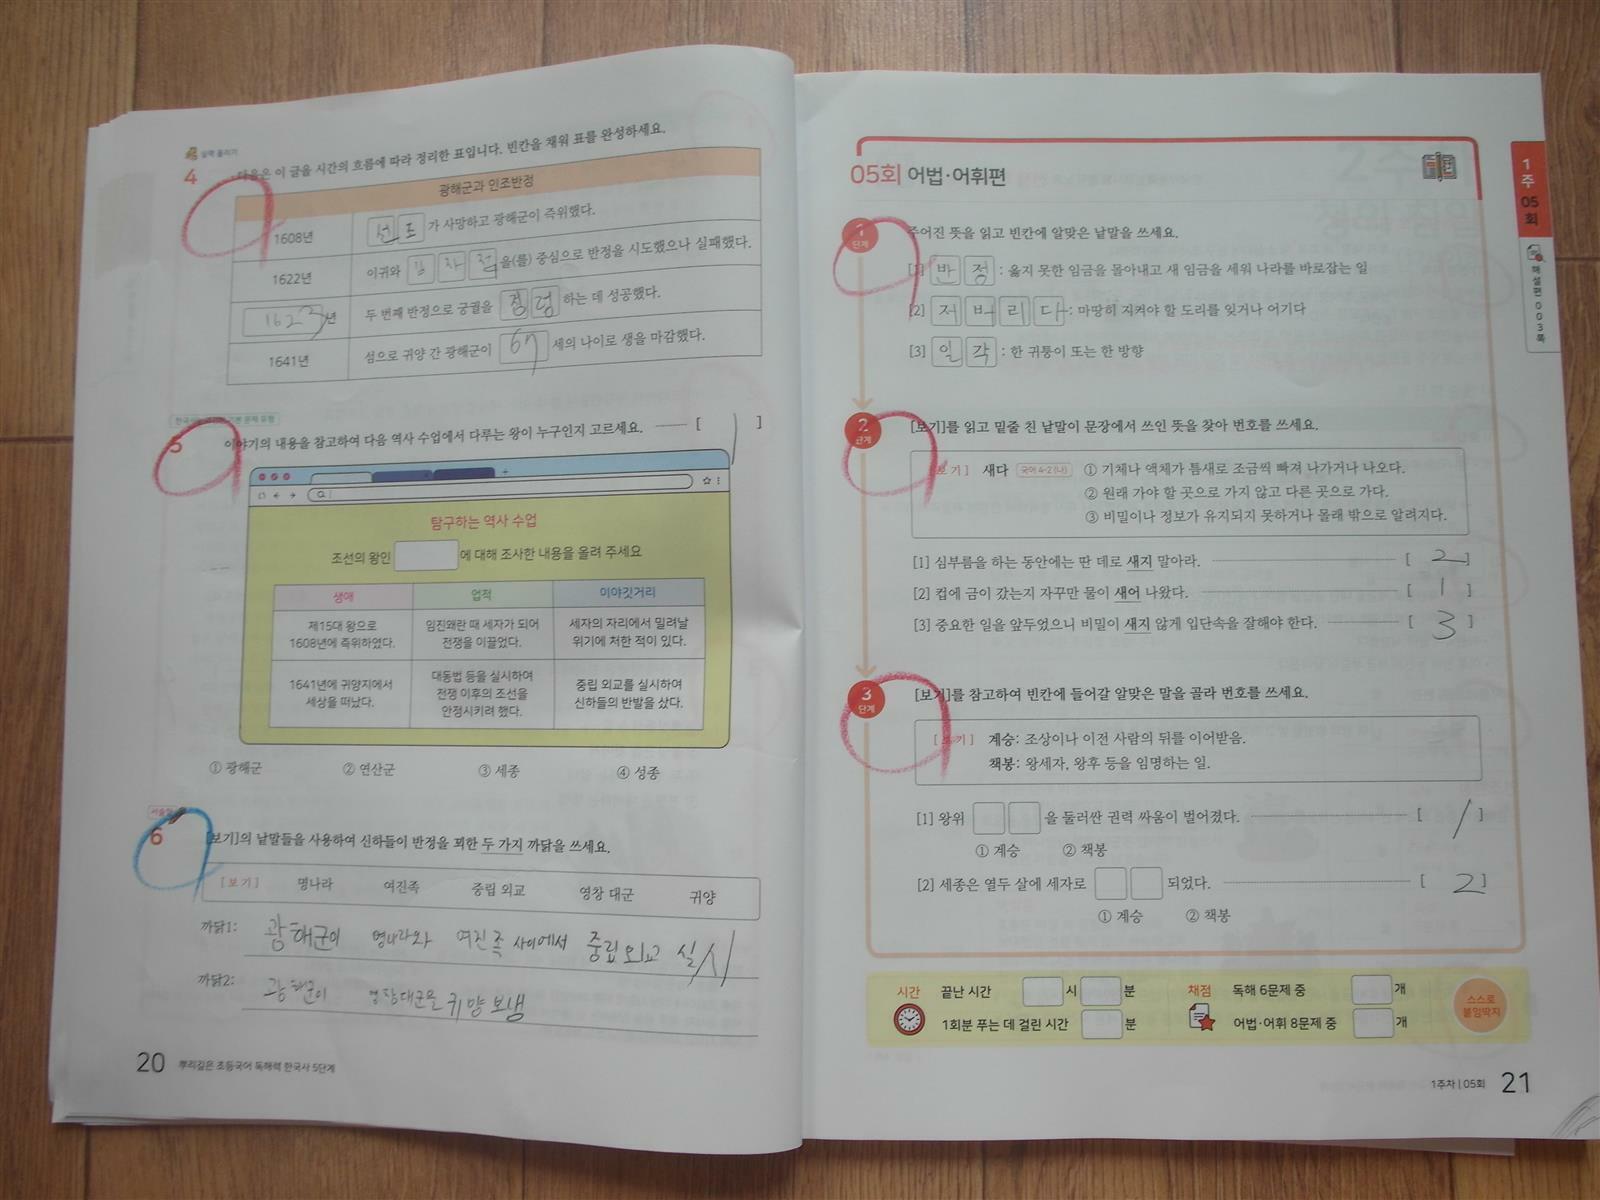 실력 올리기
4 다음은 이 글을 시간의 흐름에 따라 정리한 표입니다. 빈칸을 채워 표를 완성하세요.
광해군과 인조반정
1608년 선조가 사망하고 광해군이 즉위했다.
1622년 이귀와 김자점을(를) 중심으로 반정을 시도했으나 실패했다.
1623년 두 번째 반정으로 궁궐을 점령하는 데 성공했다.
1641년 섬으로 귀양 간 광해군이 67세의 나이로 생을 마감했다.
기본 문제 유형
5 이야기의 내용을 참고하여 다음 역사 수업에서 다루는 왕이 누구인지 고르세요. [ 1 ]
탐구하는 역사 수업
조선의 왕인 에 대해 조사한 내용을 올려 주세요
생애 업적 이야깃거리
제15대 왕으로 임진왜란 때 세자가 되어 세자의 자리에서 밀려날
1608년에 즉위하였다. 전쟁을 이끌었다. 위기에 처한 적이 있다.
1641년에 귀양지에서 대동법 등을 실시하여 중립 외교를 실시하여
세상을 떠났다. 전쟁 이후의 조선을 신하들의 반발을 샀다.
안정시키려 했다.
① 광해군 ② 연산군 ③ 세종 ④ 성종
서술형
6 [보기]의 낱말들을 사용하여 신하들이 반정을 꾀한 두 가지 까닭을 쓰세요.
[보기] 명나라 여진족 중립 외교 영창 대군 귀양
까닭1: 광해군이 명나라와 여진족 사이에서 중립외교 실시
까닭2: 광해군이 영창대군을 귀양 보냄
20 뿌리깊은 초등국어 독해력 한국사 5단계
05회 어법·어휘편
1단계 주어진 뜻을 읽고 빈칸에 알맞은 낱말을 쓰세요.
[1] 반정 : 옳지 못한 임금을 몰아내고 새 임금을 세워 나라를 바로잡는 일
[2] 저버리다 : 마땅히 지켜야 할 도리를 잊거나 어기다
[3] 일각 : 한 귀퉁이 또는 한 방향
2단계 [보기]를 읽고 밑줄 친 낱말이 문장에서 쓰인 뜻을 찾아 번호를 쓰세요.
[보기] 새다 국어 4-2(나) ① 기체나 액체가 틈새로 조금씩 빠져 나가거나 나오다.
② 원래 가야 할 곳으로 가지 않고 다른 곳으로 가다.
③ 비밀이나 정보가 유지되지 못하거나 몰래 밖으로 알려지다.
[1] 심부름을 하는 동안에는 딴 데로 새지 말아라. [ 2 ]
[2] 컵에 금이 갔는지 자꾸만 물이 새어 나왔다. [ 1 ]
[3] 중요한 일을 앞두었으니 비밀이 새지 않게 입단속을 잘해야 한다. [ 3 ]
3단계 [보기]를 참고하여 빈칸에 들어갈 알맞은 말을 골라 번호를 쓰세요.
[보기] 계승: 조상이나 이전 사람의 뒤를 이어받음.
책봉: 왕세자, 왕후 등을 임명하는 일.
[1] 왕위 을 둘러싼 권력 싸움이 벌어졌다. [ 1 ]
① 계승 ② 책봉
[2] 세종은 열두 살에 세자로 되었다. [ 2 ]
① 계승 ② 책봉
시간 끝난 시간 시 분 채점 독해 6문제 중 개
1회분 푸는 데 걸린 시간 분 어법·어휘 8문제 중 개
스스로
붙임딱지
1주차 | 05회 21
1주 05회
해설편 003쪽